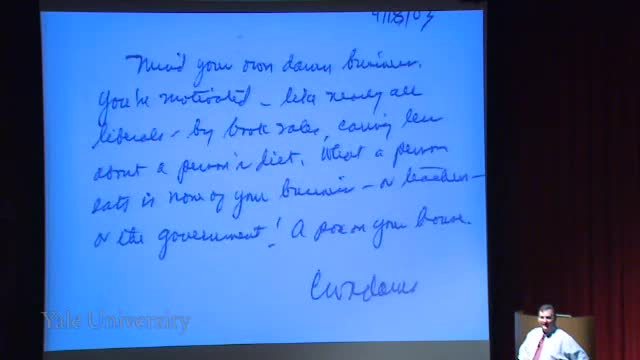 9/18/03
Mind your own damn business.
You're motivated – like nearly all
liberals – by book sales, caring less
about a person's diet. What a person
eats is none of your business – or teachers –
or the government! A pox on your house.
Yale University